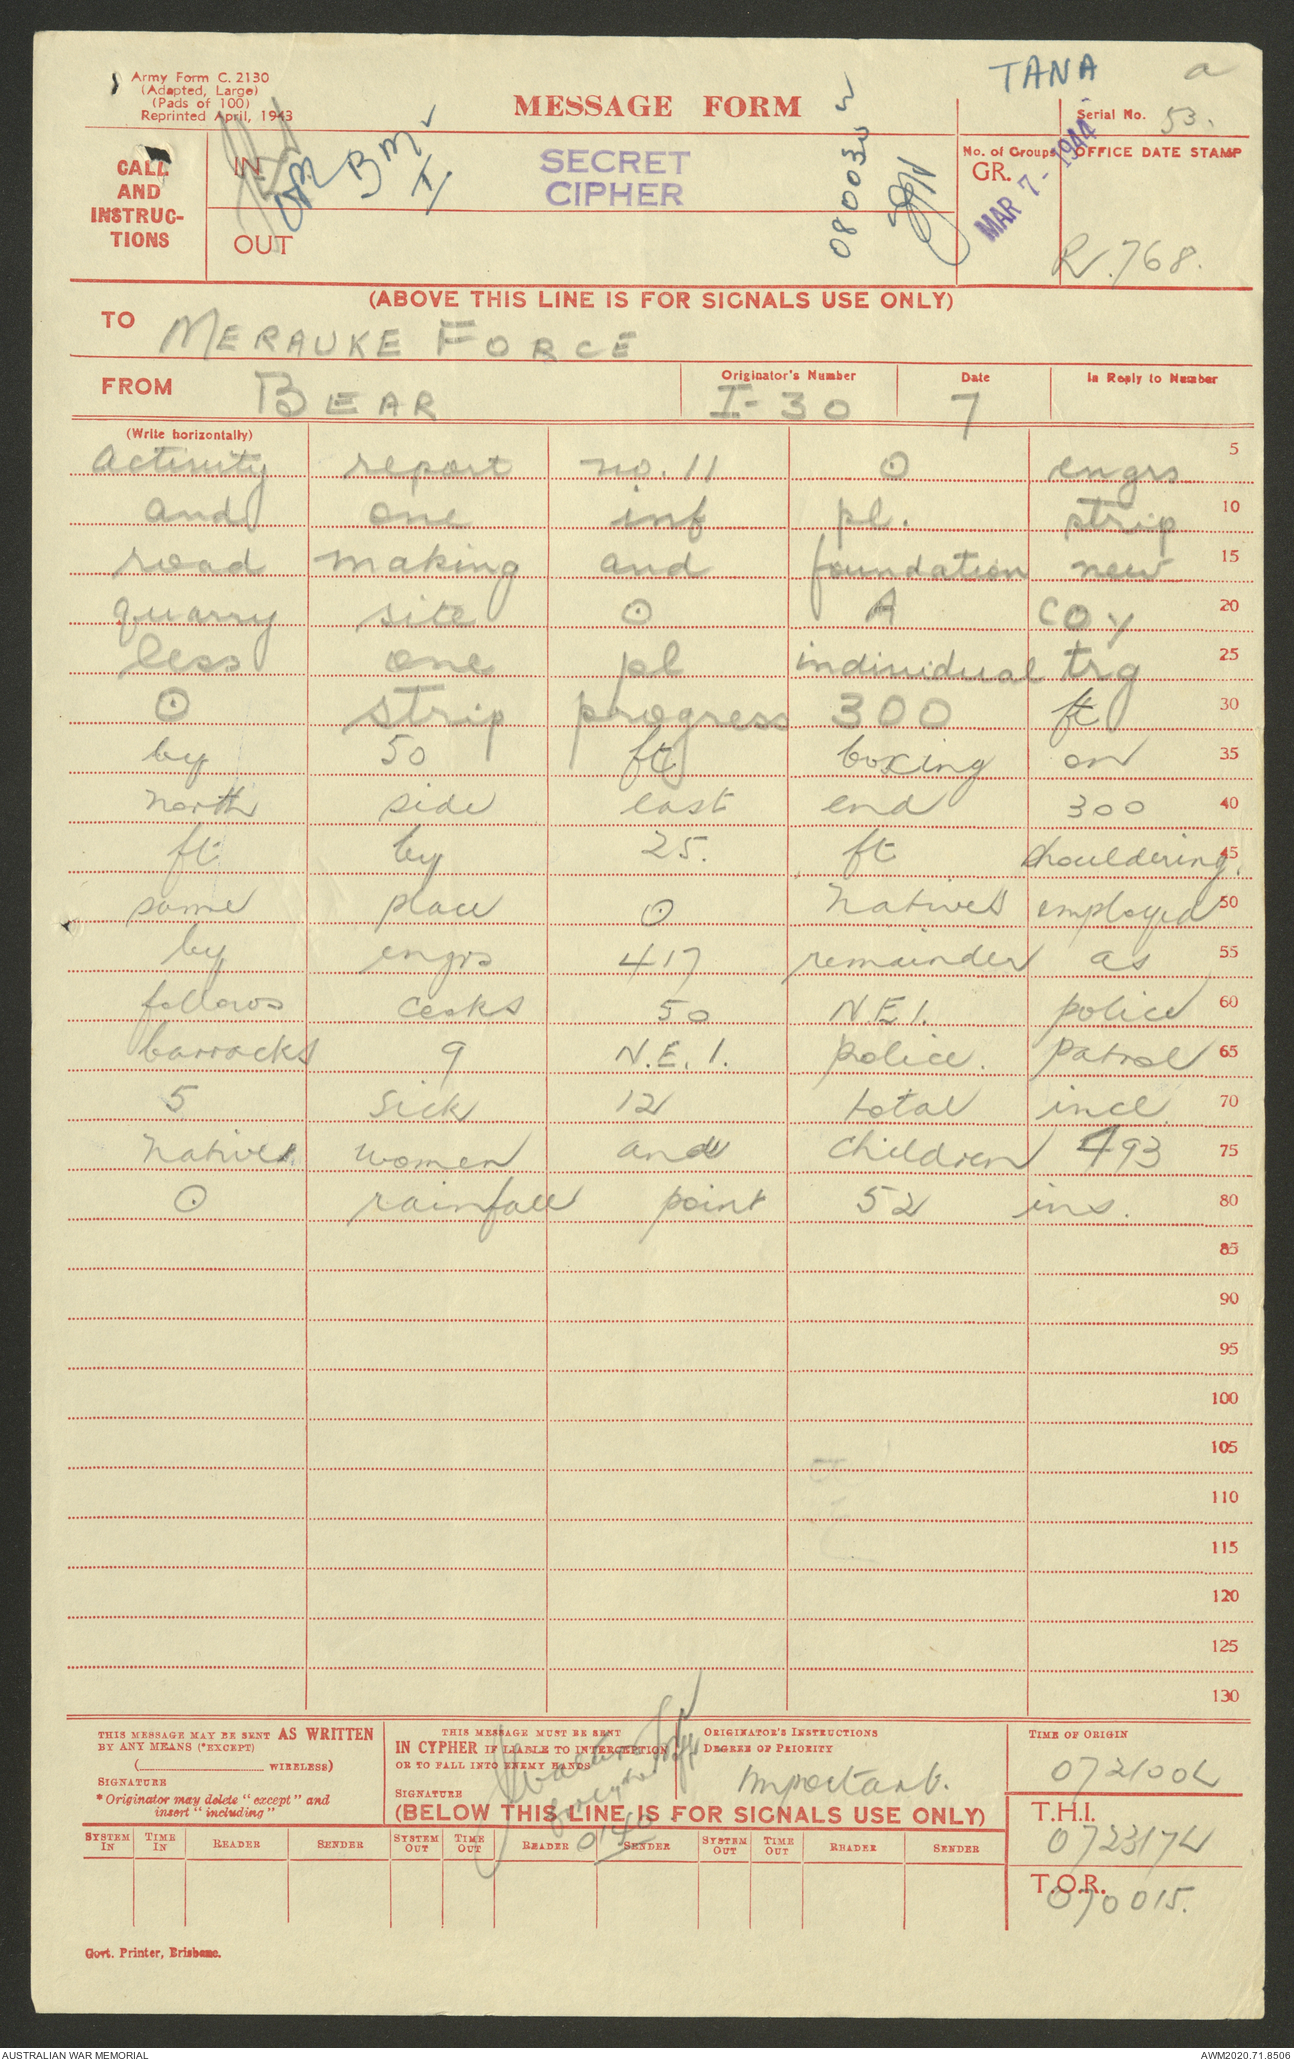 TANA a
Army Form C. 2130
(Adapted, Large)
(Pads of 100)
Reprinted April, 1943
MESSAGE FORM
Serial No. 53.
CALL
AND
INSTRUC-
TIONS
IN
BM
I
SECRET
CIPHER
No. of Groups
GR.
OFFICE DATE STAMP
MAR 7 - 1944
OUT
R.768.
(ABOVE THIS LINE IS FOR SIGNALS USE ONLY)
TO MERAUKE FORCE
FROM BEAR
Originator's Number I-30
Date 7
In Reply to Number
(Write horizontally)
activity report no. 11 ⊙ engrs 5
and one inf pl. strip 10
road making and foundation new 15
quarry site ⊙ A COY 20
less one pl individual trg 25
⊙ strip progress 300 ft 30
by 50 ft boxing on 35
north side east end 300 40
ft by 25. ft shouldering. 45
same place ⊙ natives employed 50
by engrs 417 remainder as 55
follows cooks 50 N.E.I. police 60
barracks 9 N.E.I. police. patrol 65
5 sick 12 total incl 70
natives women and children 493 75
⊙ rainfall point 52 ins. 80
85
90
95
100
105
110
115
120
125
130
THIS MESSAGE MAY BE SENT AS WRITTEN
BY ANY MEANS (*EXCEPT)
( WIRELESS)
SIGNATURE
* Originator may delete "except" and
insert "including"
THIS MESSAGE MUST BE SENT
IN CYPHER IF LIABLE TO INTERCEPTION
OR TO FALL INTO ENEMY HANDS
SIGNATURE
ORIGINATOR'S INSTRUCTIONS
DEGREE OF PRIORITY
Important.
TIME OF ORIGIN
072100L
(BELOW THIS LINE IS FOR SIGNALS USE ONLY)
T.H.I.
072317L
SYSTEM IN TIME IN READER SENDER SYSTEM OUT TIME OUT READER SENDER SYSTEM OUT TIME OUT READER SENDER
T.O.R.
070015.
Govt. Printer, Brisbane.
AUSTRALIAN WAR MEMORIAL
AWM2020.71.8506